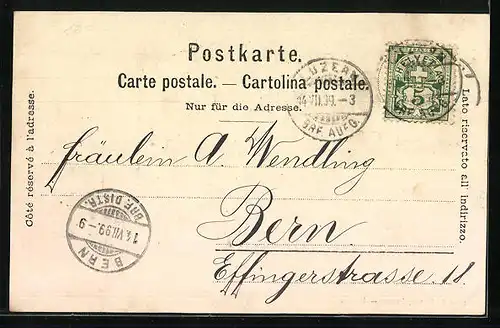 Postkarte.
Carte postale. — Cartolina postale.
Nur für die Adresse.
LUZERN
14.VII.99.–3
BRF. AUFG.
HELVETIA
5
Côté réservé à l'adresse.
Lato riservato all' indirizzo.
Fräulein A. Wendling
Bern
Effingerstrasse 18.
BRF. DISTR.
14.VII.99.–9
BERN